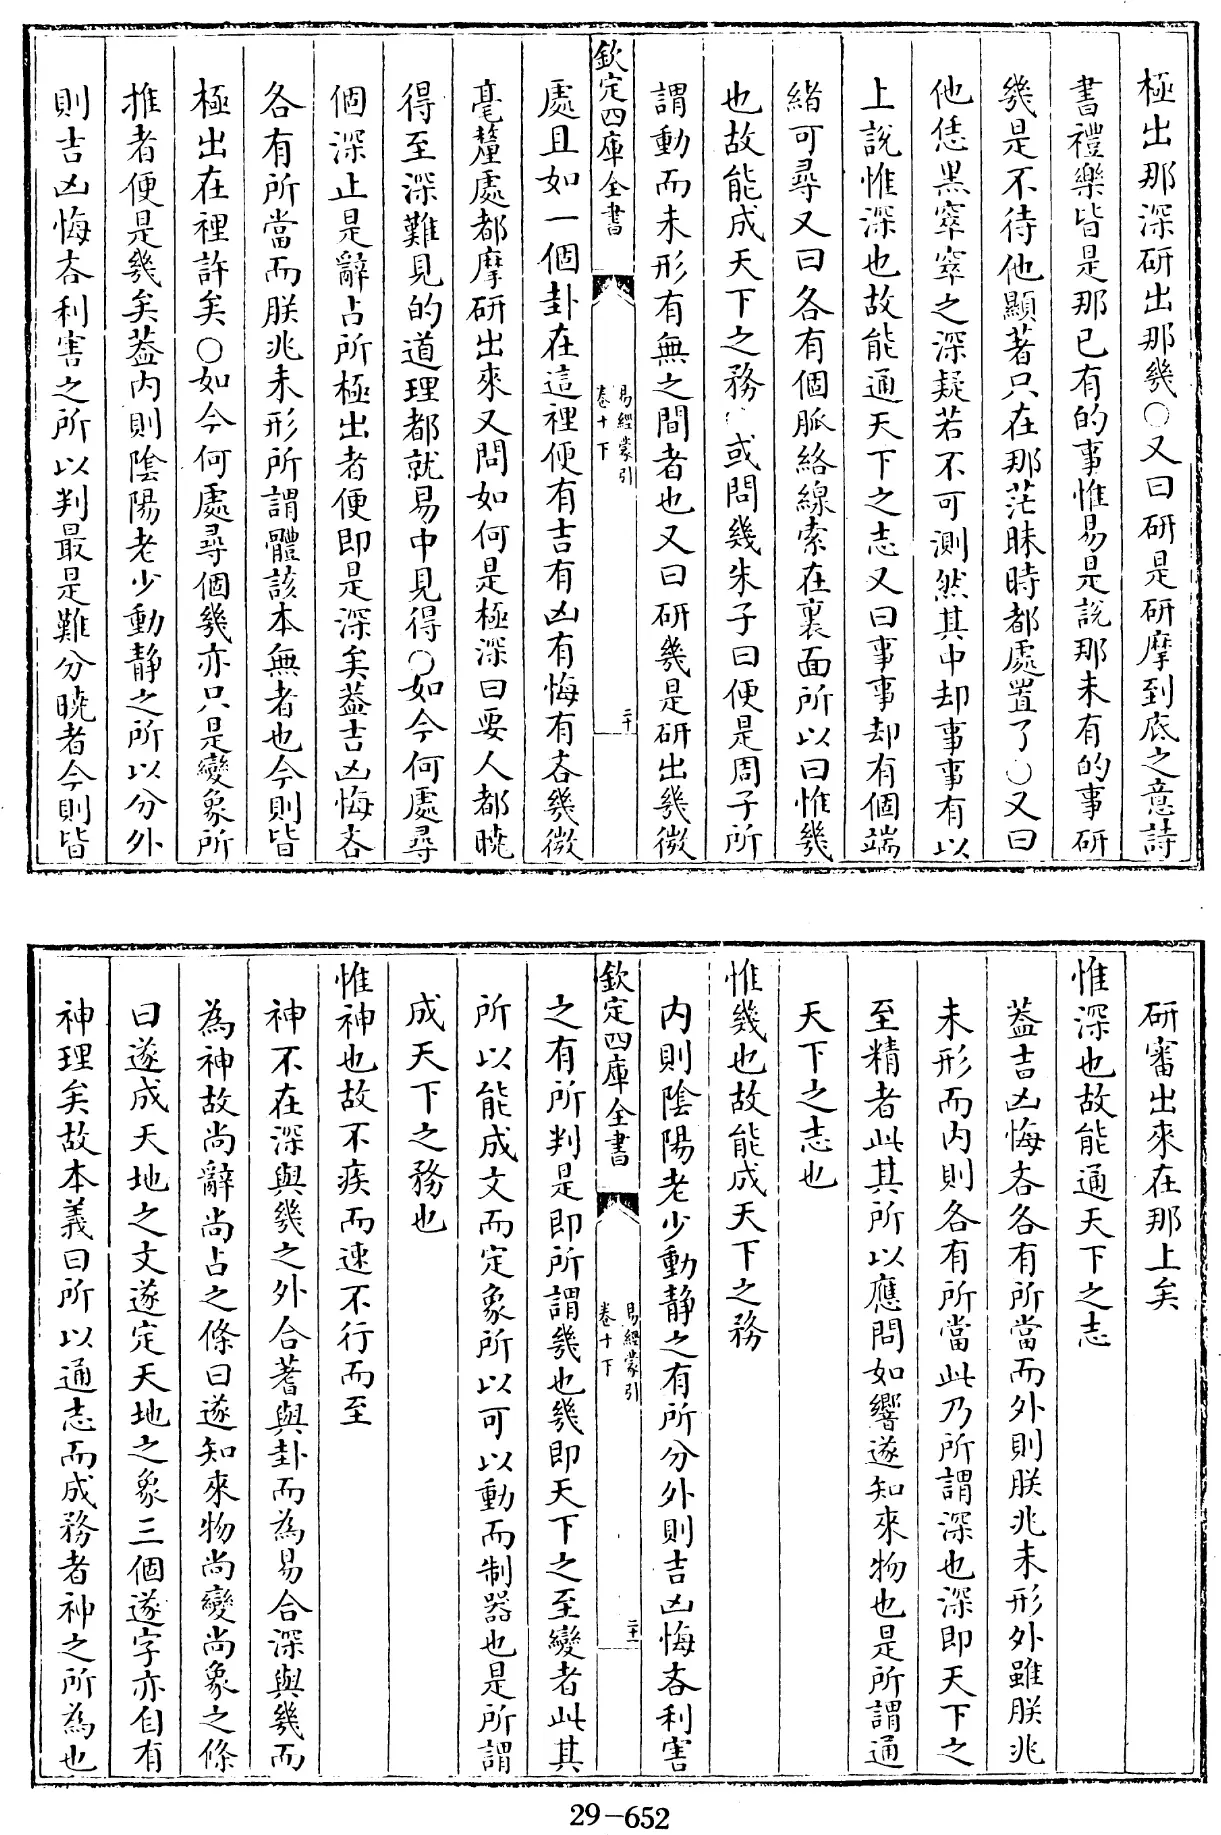 極出那深研出那幾○又曰研是研摩到底之意詩
書禮樂皆是那已有的事惟易是説那未有的事研
幾是不待他顯著只在那茫昧時都處置了○又曰
他恁黑窣窣之深疑若不可測然其中却事事有以
上説惟深也故能通天下之志又曰事事却有個端
緒可尋又曰各有個脈絡線索在裏面所以曰惟幾
也故能成天下之務○或問幾朱子曰便是周子所
謂動而未形有無之間者也又曰研幾是研出幾微
欽定四庫全書
易經蒙引
卷十下
二十
處且如一個卦在這裡便有吉有凶有悔有吝幾微
毫釐處都摩研出來又問如何是極深曰要人都曉
得至深難見的道理都就易中見得○如今何處尋
個深止是辭占所極出者便即是深矣葢吉凶悔吝
各有所當而朕兆未形所謂體該本無者也今則皆
極出在裡許矣○如今何處尋個幾亦只是變象所
推者便是幾矣葢内則陰陽老少動静之所以分外
則吉凶悔吝利害之所以判最是難分曉者今則皆
研審出來在那上矣
惟深也故能通天下之志
葢吉凶悔吝各有所當而外則朕兆未形外雖朕兆
未形而内則各有所當此乃所謂深也深即天下之
至精者此其所以應問如響遂知來物也是所謂通
天下之志也
惟幾也故能成天下之務
内則陰陽老少動静之有所分外則吉凶悔吝利害
欽定四庫全書
易經蒙引
卷十下
二十一
之有所判是即所謂幾也幾即天下之至變者此其
所以能成文而定象所以可以動而制器也是所謂
成天下之務也
惟神也故不疾而速不行而至
神不在深與幾之外合蓍與卦而為易合深與幾而
為神故尚辭尚占之條曰遂知來物尚變尚象之條
曰遂成天地之文遂定天地之象三個遂字亦自有
神理矣故本義曰所以通志而成務者神之所為也
29-652